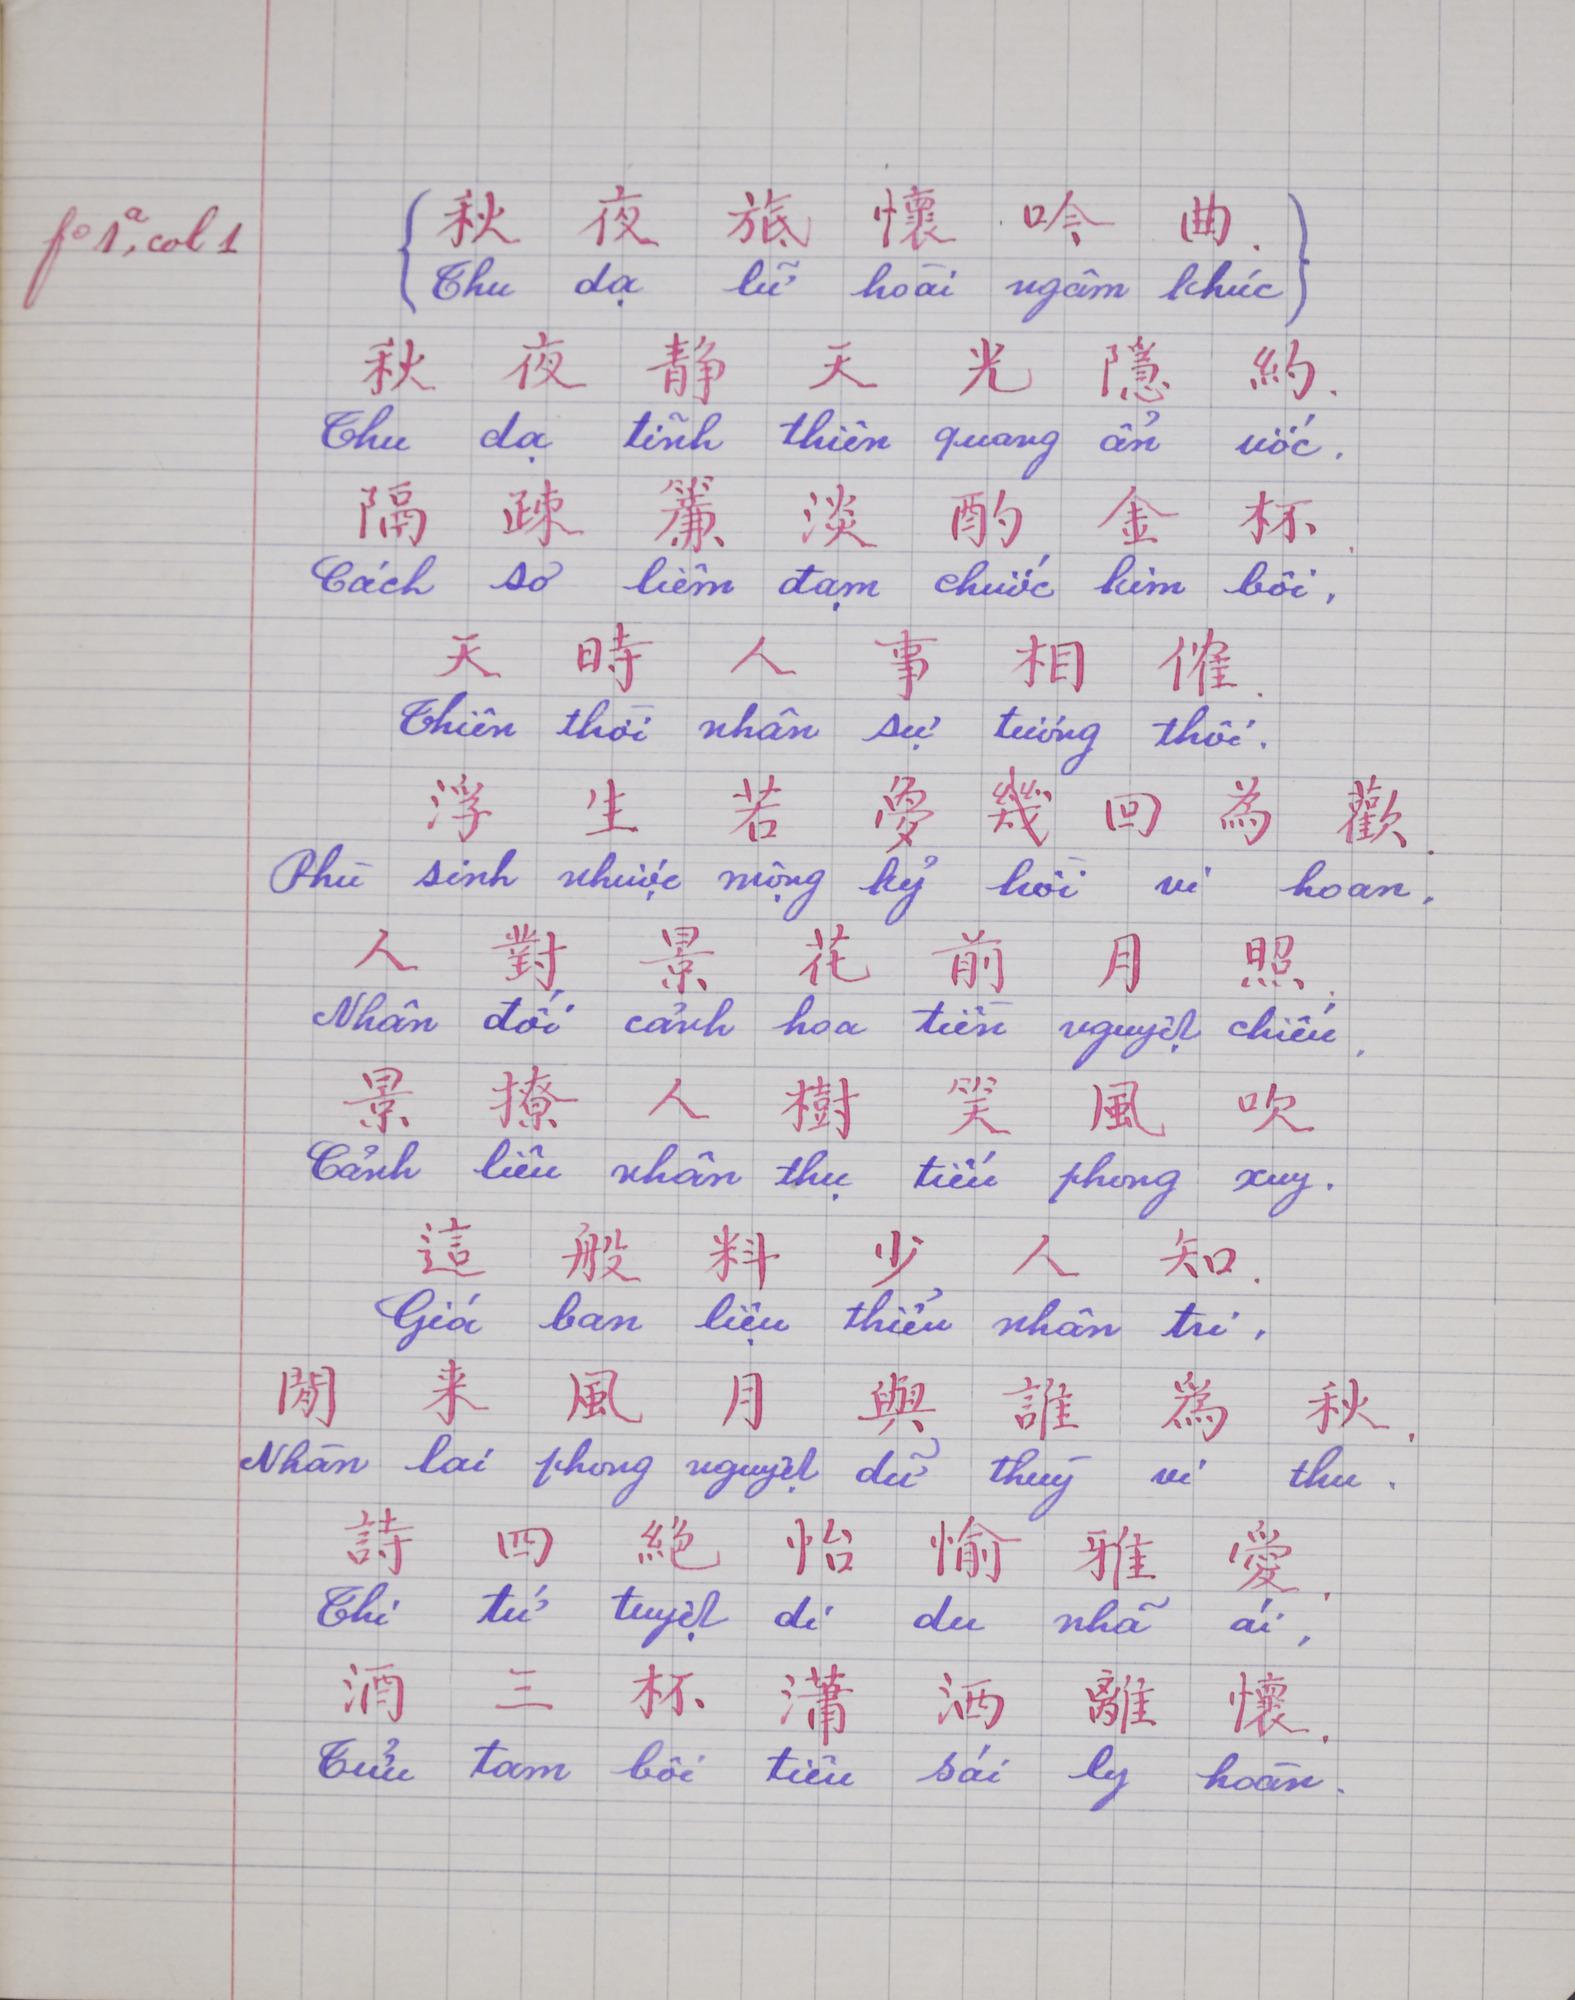 fo 1a, col 1
秋 夜 旅 懷 吟 曲.
Thu dạ lữ hoài ngâm khúc
秋 夜 静 天 光 隱 約.
Thu dạ tĩnh thiên quang ẩn ước.
隔 疎 簾 淡 酌 金 杯.
Cách sơ liêm đạm chước kim bôi,
天 時 人 事 相 催.
Thiên thời nhân sự tương thôi.
浮 生 若 夢 幾 回 為 歡.
Phù sinh nhược mộng kỷ hồi vi hoan,
人 對 景 花 前 月 照.
Nhân đối cảnh hoa tiền nguyệt chiếu,
景 撩 人 樹 笑 風 吹
Cảnh liêu nhân thụ tiếu phong xuy.
這 般 料 少 人 知.
Giá ban liệu thiểu nhân tri,
閒 来 風 月 與 誰 為 秋.
Nhàn lai phong nguyệt dữ thuỳ vi thu.
詩 四 絶 怡 愉 雅 愛.
Thi tứ tuyệt di du nhã ái,
酒 三 杯 瀟 洒 離 懷.
Tửu tam bôi tiêu sái ly hoàn.